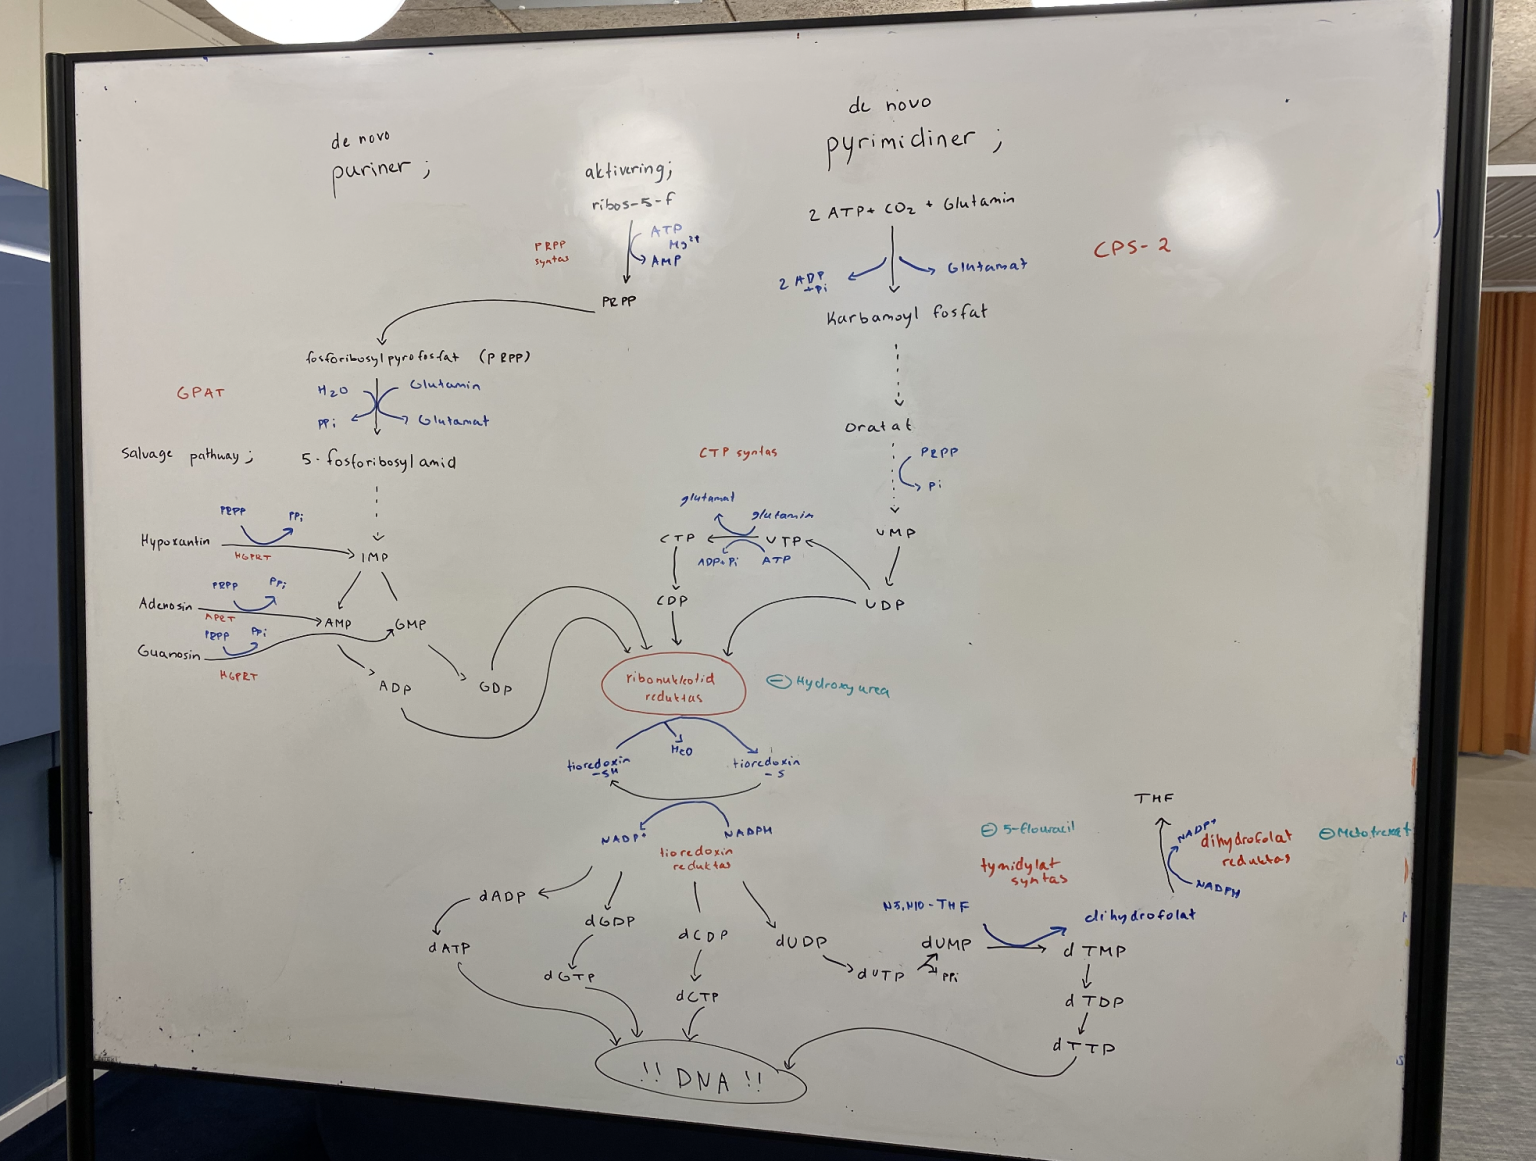 de novo
puriner ;
aktivering;
ribos-5-f
PRPP
syntas
ATP
Mg²⁺
AMP
PRPP
de novo
pyrimidiner ;
2 ATP + CO₂ + Glutamin
2 ADP
+Pi
Glutamat
CPS-2
Karbamoyl fosfat
Oratat
PRPP
Pi
UMP
UDP
fosforibosylpyrofosfat (PRPP)
GPAT
H₂O
Glutamin
PPi
Glutamat
5-fosforibosylamid
Salvage pathway ;
PRPP
PPi
Hypoxantin
HGPRT
IMP
PRPP
PPi
Adenosin
APRT
AMP
GMP
PRPP
PPi
Guanosin
HGPRT
ADP
GDP
CTP syntas
glutamat
glutamin
CTP
UTP
ADP+Pi
ATP
CDP
ribonukleotid
reduktas
⊖ Hydroxyurea
H₂O
tioredoxin
-SH
tioredoxin
-S
NADP+
NADPH
tioredoxin
reduktas
dADP
dATP
dGDP
dGTP
dCDP
dCTP
dUDP
dUTP
PPi
dUMP
N5,N10-THF
⊖ 5-flouracil
tymidylat
syntas
dihydrofolat
THF
NADP+
NADPH
dihydrofolat
reduktas
⊖ Metotrexat
dTMP
dTDP
dTTP
!! DNA !!